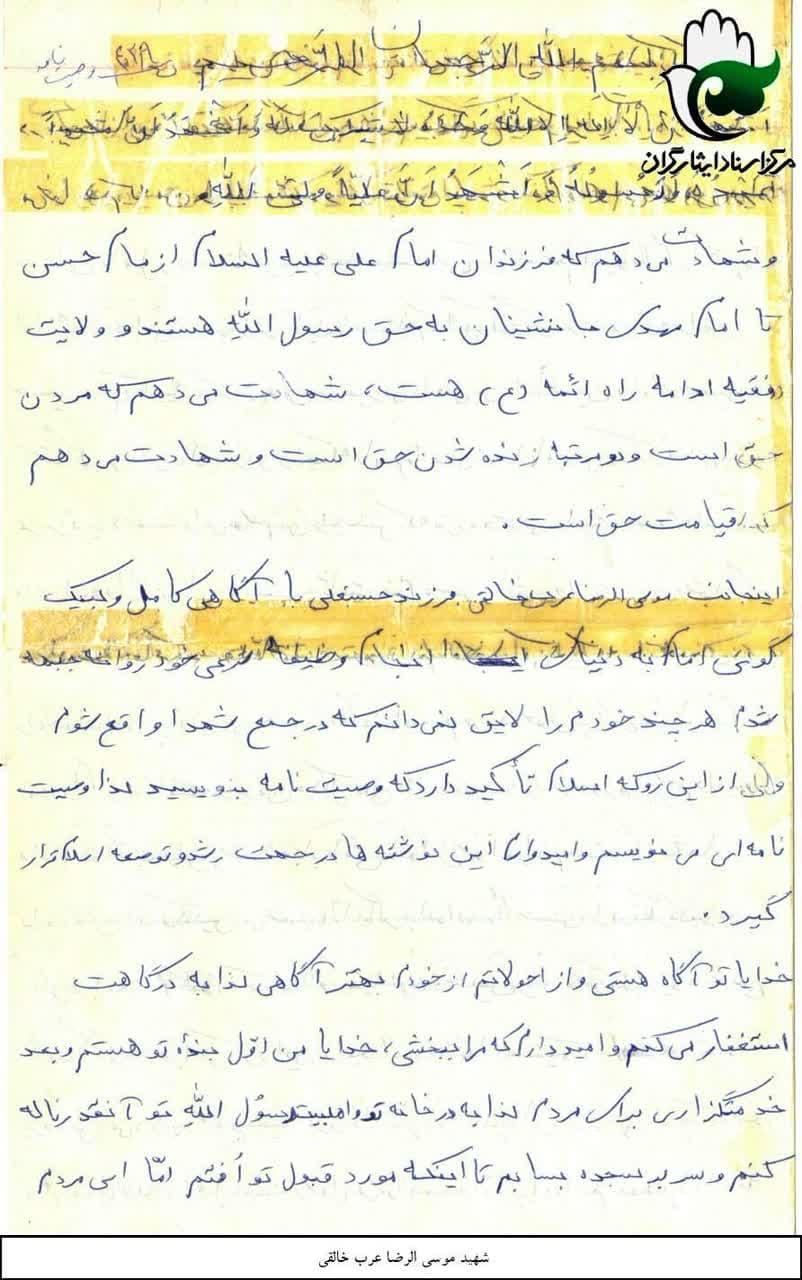 بسم الله الرحمن الرحیم
وصیت نامه
مرکز اسناد ایثارگران
اشهد ان لا اله الا الله وحده لا شریک له و اشهد ان محمداً
عبده و رسوله و اشهد ان علیاً ولی الله
و شهادت می دهم که فرزندان امام علی علیه السلام از امام حسن
تا امام مهدی جانشینان به حق رسول الله هستند و ولایت
فقیه ادامه راه ائمه (ع) هست، شهادت می دهم که مردن
حق است و دو مرتبه زنده شدن حق است و شهادت می دهم
که قیامت حق است.
اینجانب موسی الرضا عرب خالقی فرزند حسنعلی با آگاهی کامل و لبیک
گوئی امام به انجام وظیفه شرعی خود روانه جبهه
شدم هر چند خودم را لایق نمی دانم که در جمع شهدا واقع شوم
ولی از این رو که اسلام تأکید دارد که وصیت نامه بنویسید لذا وصیت
نامه ای می نویسم و امیدوارم این نوشته ها در جهت رشد و توصعه اسلام قرار
گیرد.
خدایا تو آگاه هستی و از احولاتم از خودم بهتر آگاهی لذا به درگاهت
استغفار می کنم و امید دارم که مرا ببخشی، خدایا من اوّل بندهٔ تو هستم و بعد
خدمتگزاری برای مردم لذا به در خانه تو و اهلبیت رسول الله تو آنقدر ناله
کنم و سر بر سجده بسابم تا اینکه مورد قبول تو اُفتم امّا ای مردم
شهید موسی الرضا عرب خالقی